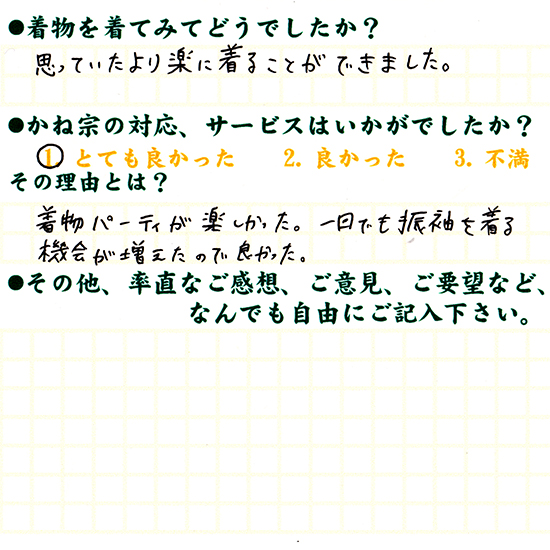 ●着物を着てみてどうでしたか？
思っていたより楽に着ることができました。
●かね宗の対応、サービスはいかがでしたか？
1 とても良かった 2. 良かった 3. 不満
その理由とは？
着物パーティが楽しかった。一回でも振袖を着る
機会が増えたので良かった。
●その他、率直なご感想、ご意見、ご要望など、
なんでも自由にご記入下さい。